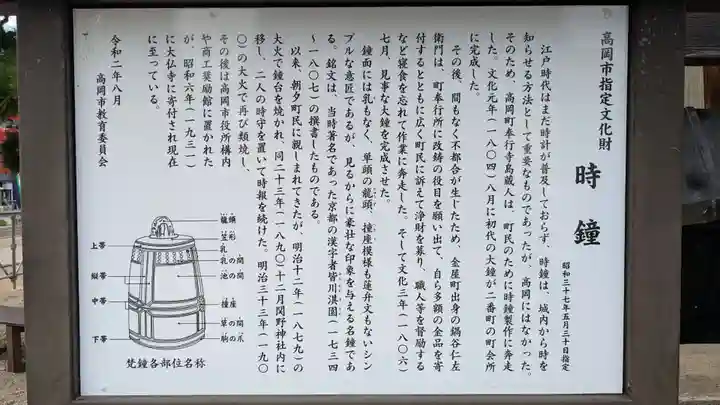 高岡市指定文化財
時鐘
昭和三十七年五月三十日指定
江戸時代はまだ時計が普及しておらず、時鐘は、城内から時を
知らせる方法として重要なものであったが、高岡にはなかった。
そのため、高岡町奉行寺島蔵人は、町民のために時鐘製作に奔走
した。文化元年(一八〇四)八月に初代の大鐘が二番町の町会所
に完成した。
その後、間もなく不都合が生じたため、金屋町出身の鍋谷仁左
衛門は、町奉行所に改鋳の役目を願い出て、自ら多額の金品を寄
付するとともに広く町民に訴えて浄財を募り、職人等を督励する
など寝食を忘れて作業に奔走した。そして文化三年(一八〇六)
七月、見事な大鐘を完成させた。
鐘面には乳もなく、単頭の龍頭、撞座模様も蓮弁文もないシン
プルな意匠であるが、見るからに豪壮な印象を与える名鐘であ
る。銘文は、当時著名であった京都の漢字者皆川淇園(一七三四
〜一八〇七)の撰書したものである。
以来、朝夕町民に親しまれてきたが、明治十二年(一八七九)の
大火で鐘台を焼かれ、同二十三年(一八九〇)十二月関野神社内に
移し、二人の時守を置いて時報を続けた。明治三十三年(一九〇
〇)の大火で再び類焼し、
その後は高岡市役所構内
や商工奨励館に置かれた
が、昭和六年(一九三一)
に大仏寺に寄付され現在
に至っている。
令和二年八月
高岡市教育委員会
龍頭
笠形
乳の間
池の間
撞座
草の間
駒の爪
上帯
縦帯
中帯
下帯
梵鐘各部位名称